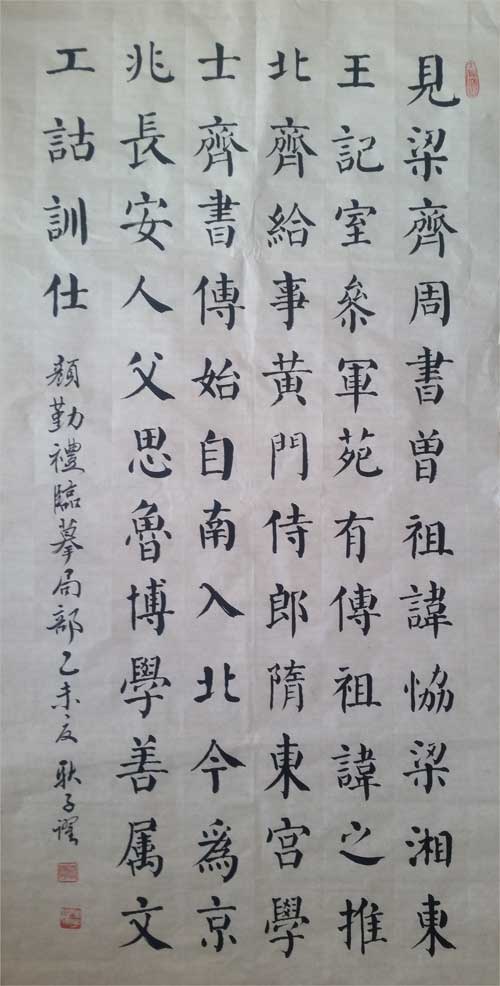 見梁齊周書曾祖諱恊梁湘東
王記室叅軍苑有傳祖諱之推
北齊給事黄門侍郎隋東宮學
士齊書傳始自南入北今爲京
兆長安人父思魯博學善属文
工詁訓仕
顏勤禮臨摹局部乙未夏耿子